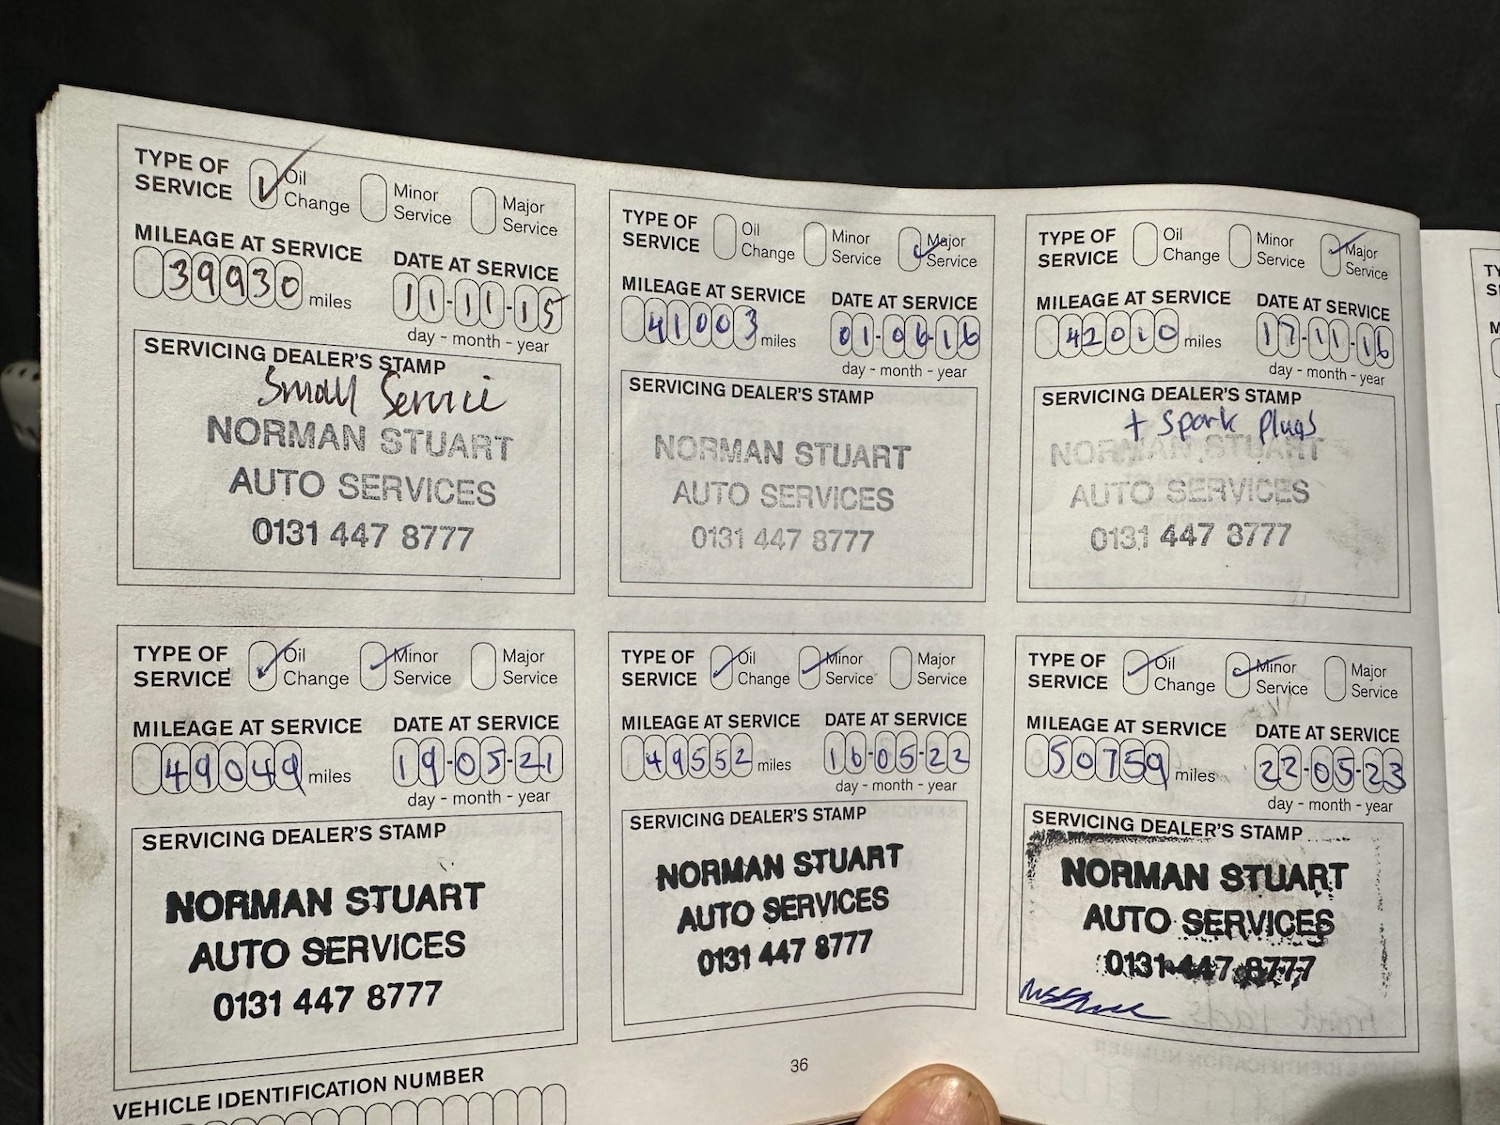 TYPE OF SERVICE Oil Change Minor Service Major Service
MILEAGE AT SERVICE DATE AT SERVICE
39930 miles 11-11-15
day - month - year
SERVICING DEALER'S STAMP
Small Service
NORMAN STUART
AUTO SERVICES
0131 447 8777
TYPE OF SERVICE Oil Change Minor Service Major Service
MILEAGE AT SERVICE DATE AT SERVICE
41003 miles 01-06-16
day - month - year
SERVICING DEALER'S STAMP
NORMAN STUART
AUTO SERVICES
0131 447 8777
TYPE OF SERVICE Oil Change Minor Service Major Service
MILEAGE AT SERVICE DATE AT SERVICE
42010 miles 17-11-16
day - month - year
SERVICING DEALER'S STAMP
+ spark plugs
NORMAN STUART
AUTO SERVICES
0131 447 8777
TYPE OF SERVICE Oil Change Minor Service Major Service
MILEAGE AT SERVICE DATE AT SERVICE
49049 miles 19-05-21
day - month - year
SERVICING DEALER'S STAMP
NORMAN STUART
AUTO SERVICES
0131 447 8777
TYPE OF SERVICE Oil Change Minor Service Major Service
MILEAGE AT SERVICE DATE AT SERVICE
49552 miles 16-05-22
day - month - year
SERVICING DEALER'S STAMP
NORMAN STUART
AUTO SERVICES
0131 447 8777
TYPE OF SERVICE Oil Change Minor Service Major Service
MILEAGE AT SERVICE DATE AT SERVICE
50759 miles 22-05-23
day - month - year
SERVICING DEALER'S STAMP
NORMAN STUART
AUTO SERVICES
0131 447 8777
VEHICLE IDENTIFICATION NUMBER
36